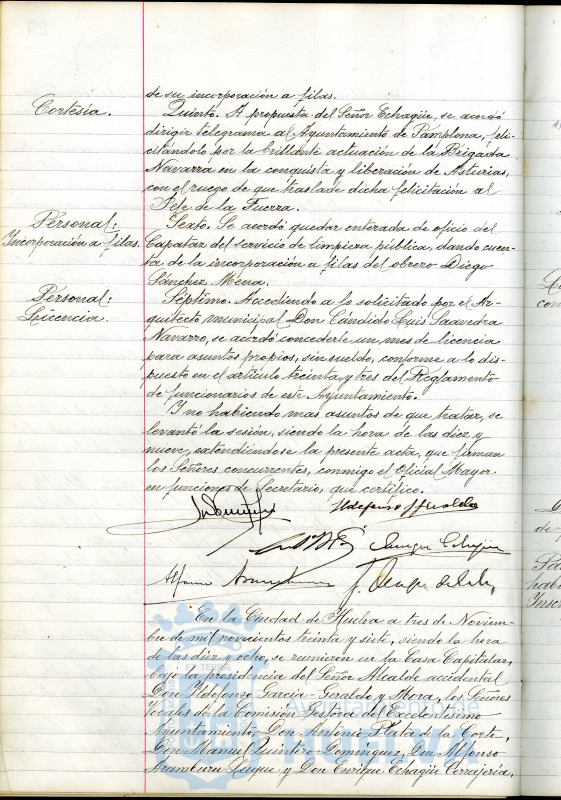 de su incorporación a filas.
Cortesía.
Quinto. A propuesta del Señor Echagüe, se acordó
dirigir telegrama al Ayuntamiento de Pamplona, feli-
citándolo por la brillante actuación de la Brigada
Navarra en la conquista y liberación de Asturias,
con el ruego de que traslade dicha felicitación al
Jefe de la Fuerza.
Personal:
Incorporación a filas.
Sexto. Se acordó quedar enterada de oficio del
Capataz del servicio de limpieza pública, dando cuen-
ta de la incorporación a filas del obrero Diego
Sánchez Mena.
Personal:
Licencia.
Séptimo. Accediendo a lo solicitado por el Ar-
quitecto municipal Don Cándido Luis Saavedra
Navarro, se acordó concederle un mes de licencia
para asuntos propios, sin sueldo, conforme a lo dis-
puesto en el artículo treinta y tres del Reglamento
de funcionarios de este Ayuntamiento.
Y no habiendo mas asuntos de que tratar, se
levantó la sesión, siendo la hora de las diez y
nueve, extendiéndose la presente acta, que firman
los Señores concurrentes, conmigo el Oficial Mayor
en funciones de Secretario, que certifico.
Ildefonso G Geraldo
Enrique Echagüe
Alfonso Aramburu
En la Ciudad de Huelva a tres de Noviem-
bre de mil novecientos treinta y siete, siendo la hora
de las diez y ocho, se reunieron en la Casa Capitular,
bajo la presidencia del Señor Alcalde accidental
Don Ildefonso Garcia-Geraldo y Mora, los Señores
Vocales de la Comisión Gestora del Excelentísimo
Ayuntamiento, Don Antonio Plata de la Corte,
Don Manuel Quintero Domínguez, Don Alfonso
Aramburu Luque y Don Enrique Echagüe Torrajería,
Ayuntamiento de
HUELVA